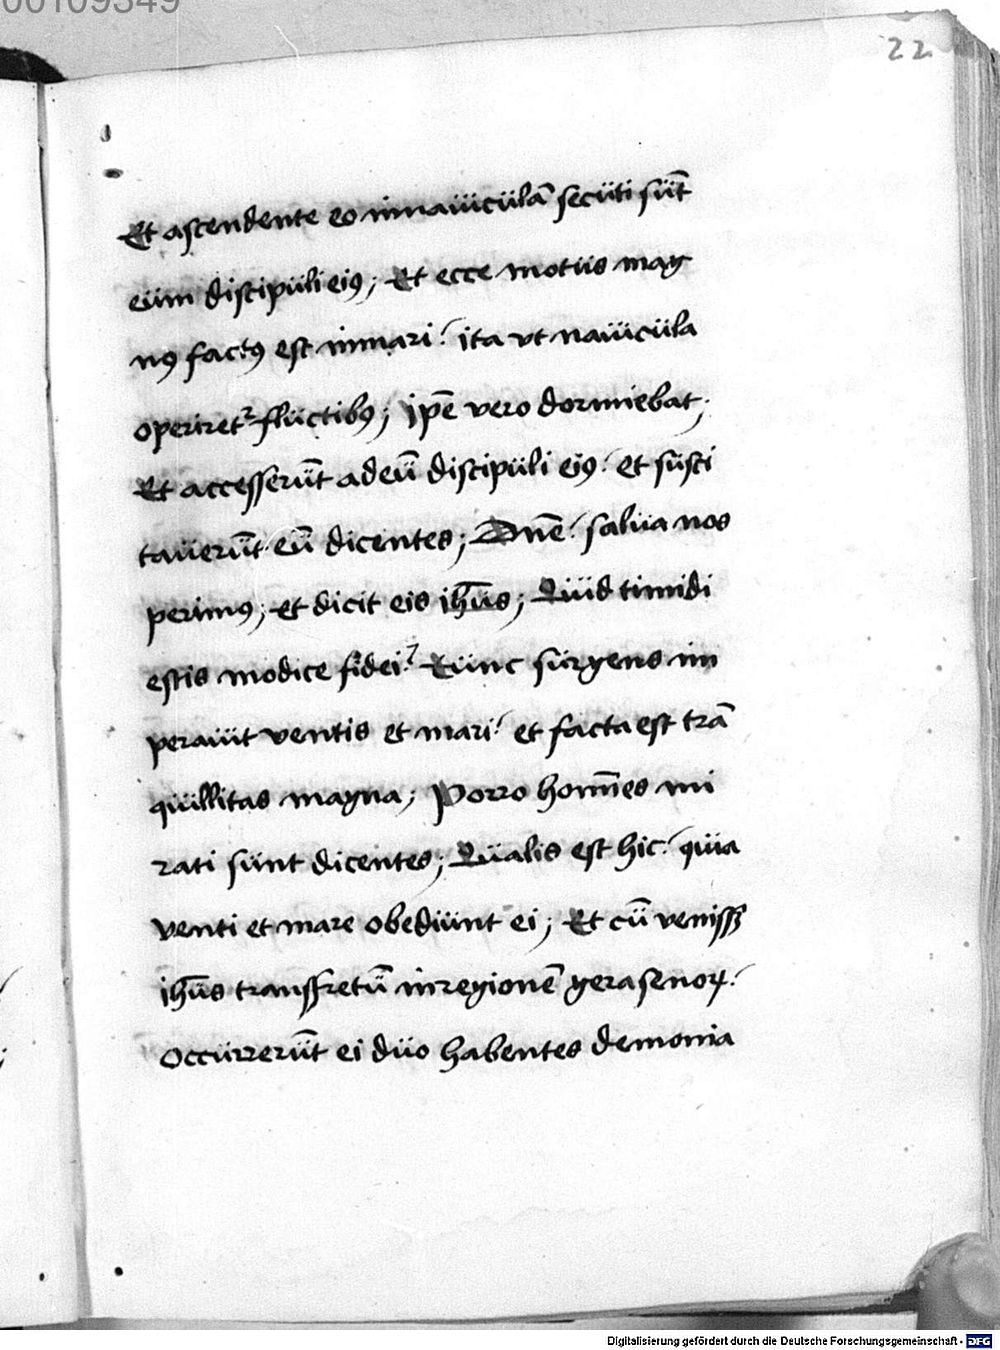 00109349
22
Et ascendente eo in nauiculā secuti sūt
eum discipuli eiꝰ; Et ecce motus mag
nꝰ factꝰ est in mari / ita vt nauicula
operiretᷣ fluctibꝰ; ip̄e vero dormiebat;
Et accesserūt ad eū discipuli eiꝰ / et susci
tauerūt eū dicentes; Dn̄e / salua nos
perimꝰ; et dicit eis ih̄us; Quid timidi
estis modice fidei? Tunc surgens im
perauit ventis et mari / et facta est trā
quillitas magna; Porro hom̄es mi
rati sunt dicentes; Qualis est hic / quia
venti et mare obediunt ei; Et cū venissꝫ
ih̄us transfretū in regionē gerasenoꝝ /
Occurrerūt ei duo habentes demonia
Digitalisierung gefördert durch die Deutsche Forschungsgemeinschaft - DFG